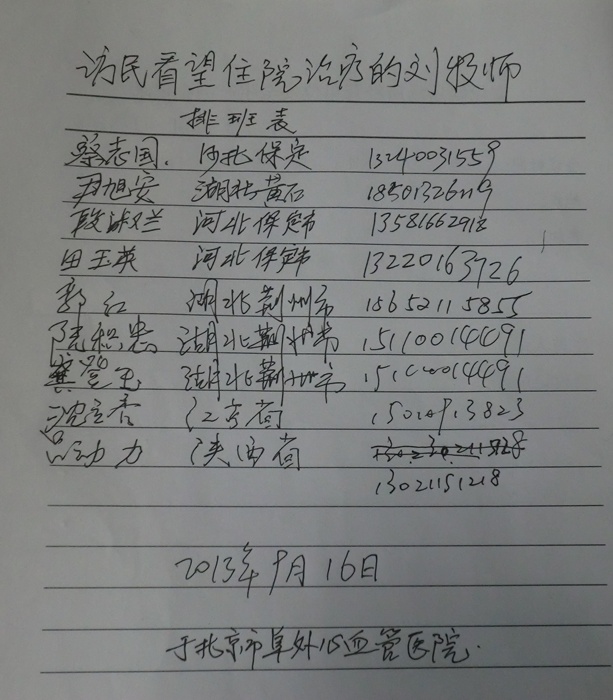 访民看望住院治疗的刘牧师
排班表
蔡志国. 河北保定 13240031559
尹旭安 湖北黄石 18501326119
段淑兰 河北保定市 13581662912
田玉英 河北保定市 13220163726
郭红 湖北荆州市 15652115855
陈积忠 湖北荆州市 15110014491
龚 湖北荆州市 15110014491
沈立香 江 省
力 陕西省
13021151218
2013年9月16日
于北京市阜外心血管医院.